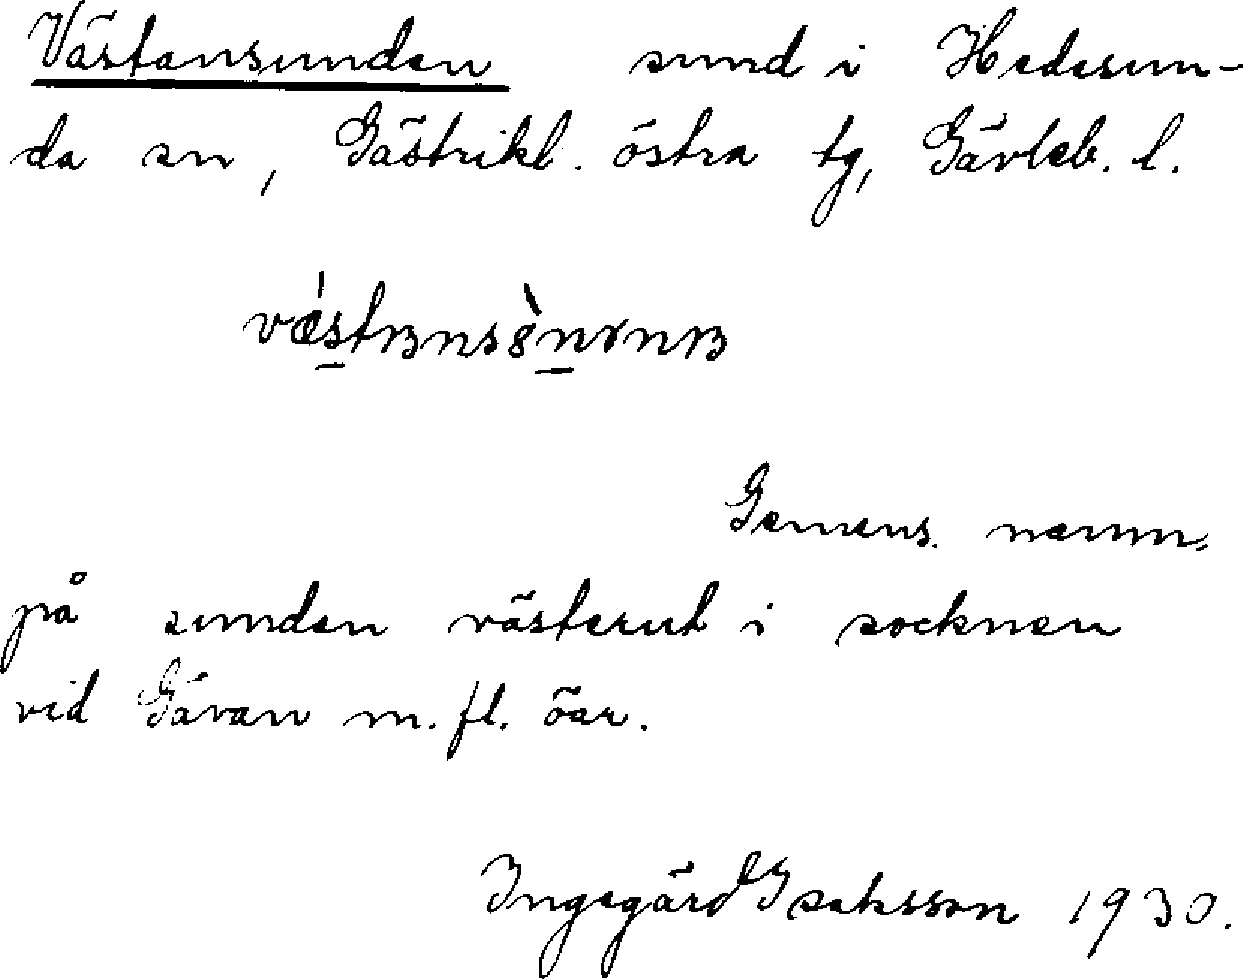 Västansunden sund i Hedesun-
da sn, Gästrikl. östra tg, Gävleb. l.
Gemens. namn
på sunden västerut i socknen
vid Gåvan m. fl. öar.
Ingegärd Isaksson 1930.